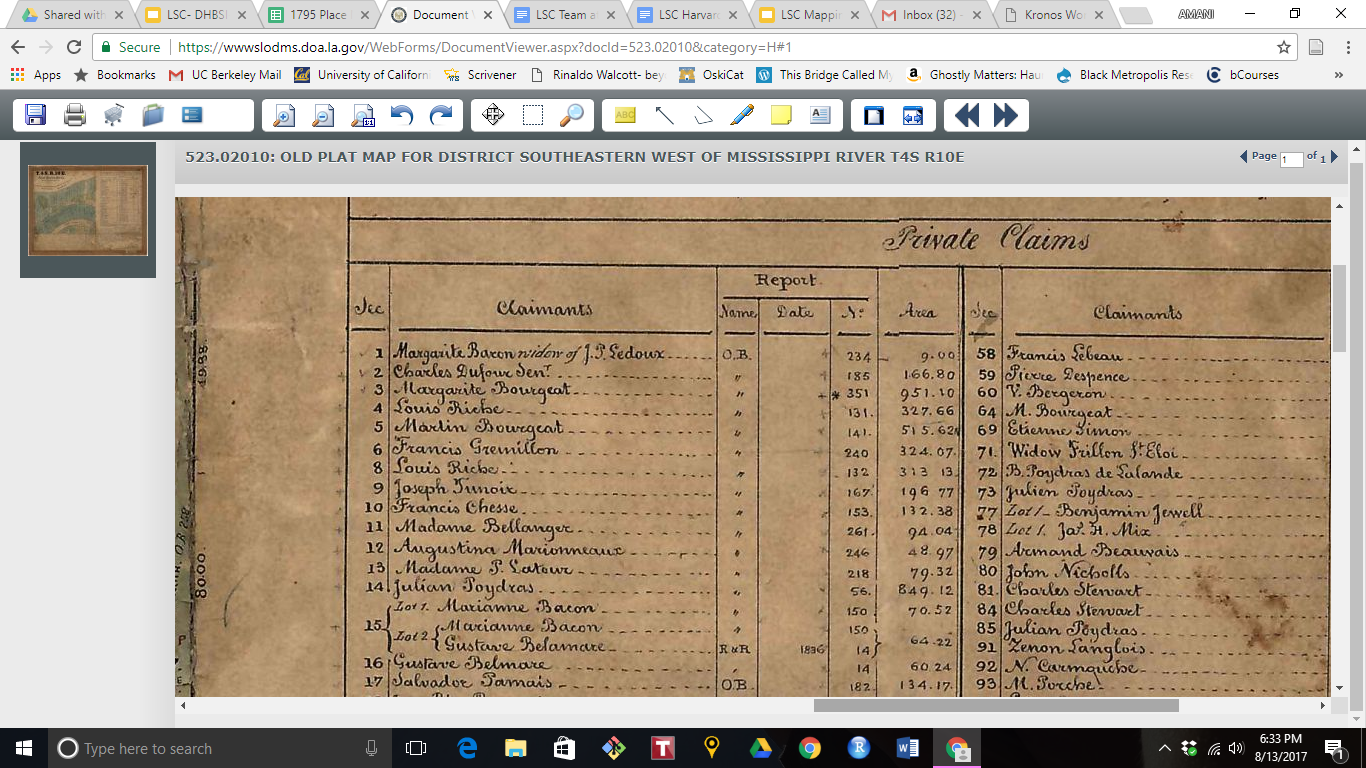 Shared with
LSC- DHBSI
1795 Place
Document
LSC Team a
LSC Harvar
LSC Mappin
Inbox (32) -
Kronos Wor
AMANI
Secure https://wwwslodms.doa.la.gov/WebForms/DocumentViewer.aspx?docId=523.02010&category=H#1
Apps Bookmarks UC Berkeley Mail University of Californ Scrivener Rinaldo Walcott- bey OskiCat This Bridge Called My Ghostly Matters: Hau Black Metropolis Rese bCourses »
523.02010: OLD PLAT MAP FOR DISTRICT SOUTHEASTERN WEST OF MISSISSIPPI RIVER T4S R10E
Page 1 of 1
Private Claims
Sec Claimants Report Area Sec Claimants
Name Date No.
1 Margarite Baron widow of J.P. Ledoux O.B. 234 9.00 58 Francis Lebeau
2 Charles Dufour Senr. " 185 166.80 59 Pierre Despence
3 Margarite Bourgeat " * 351 951.10 60 V. Bergeron
4 Louis Riche " 131. 327.66 64 M. Bourgeat
5 Martin Bourgeat " 141. 515.62 69 Etienne Simon
6 Francis Gremillon " 240 324.07. 71. Widow Frillon St. Eloi
8 Louis Riche " 132 313 13 72 B. Poydras de Lalande
9 Joseph Junoix " 167. 196 77 73 Julien Poydras
10 Francis Chesse " 153. 132.38 77 Lot 1 Benjamin Jewell
11 Madame Bellanger " 261. 94.04 78 Lot 1. Jas. H. Mix
12 Augustina Marionneaux " 246 48.97 79 Armand Beauvais
13 Madame P. Latour " 218 79.32 80 John Nicholls
14 Julian Poydras " 56. 849.12 81. Charles Stewart
Lot 1. Marianne Bacon " 150 70.52 84 Charles Stewart
15 Lot 2 Marianne Bacon " 150 64.22 85 Julian Poydras
Gustave Belamare R&R 1836 14 91 Zenon Langlois
16 Gustave Belmare " 14 60.24 92 N. Carmouche
17 Salvador Pamais O.B. 182 134.17. 93 M. Porche
49.88
80.00
Type here to search
6:33 PM
8/13/2017